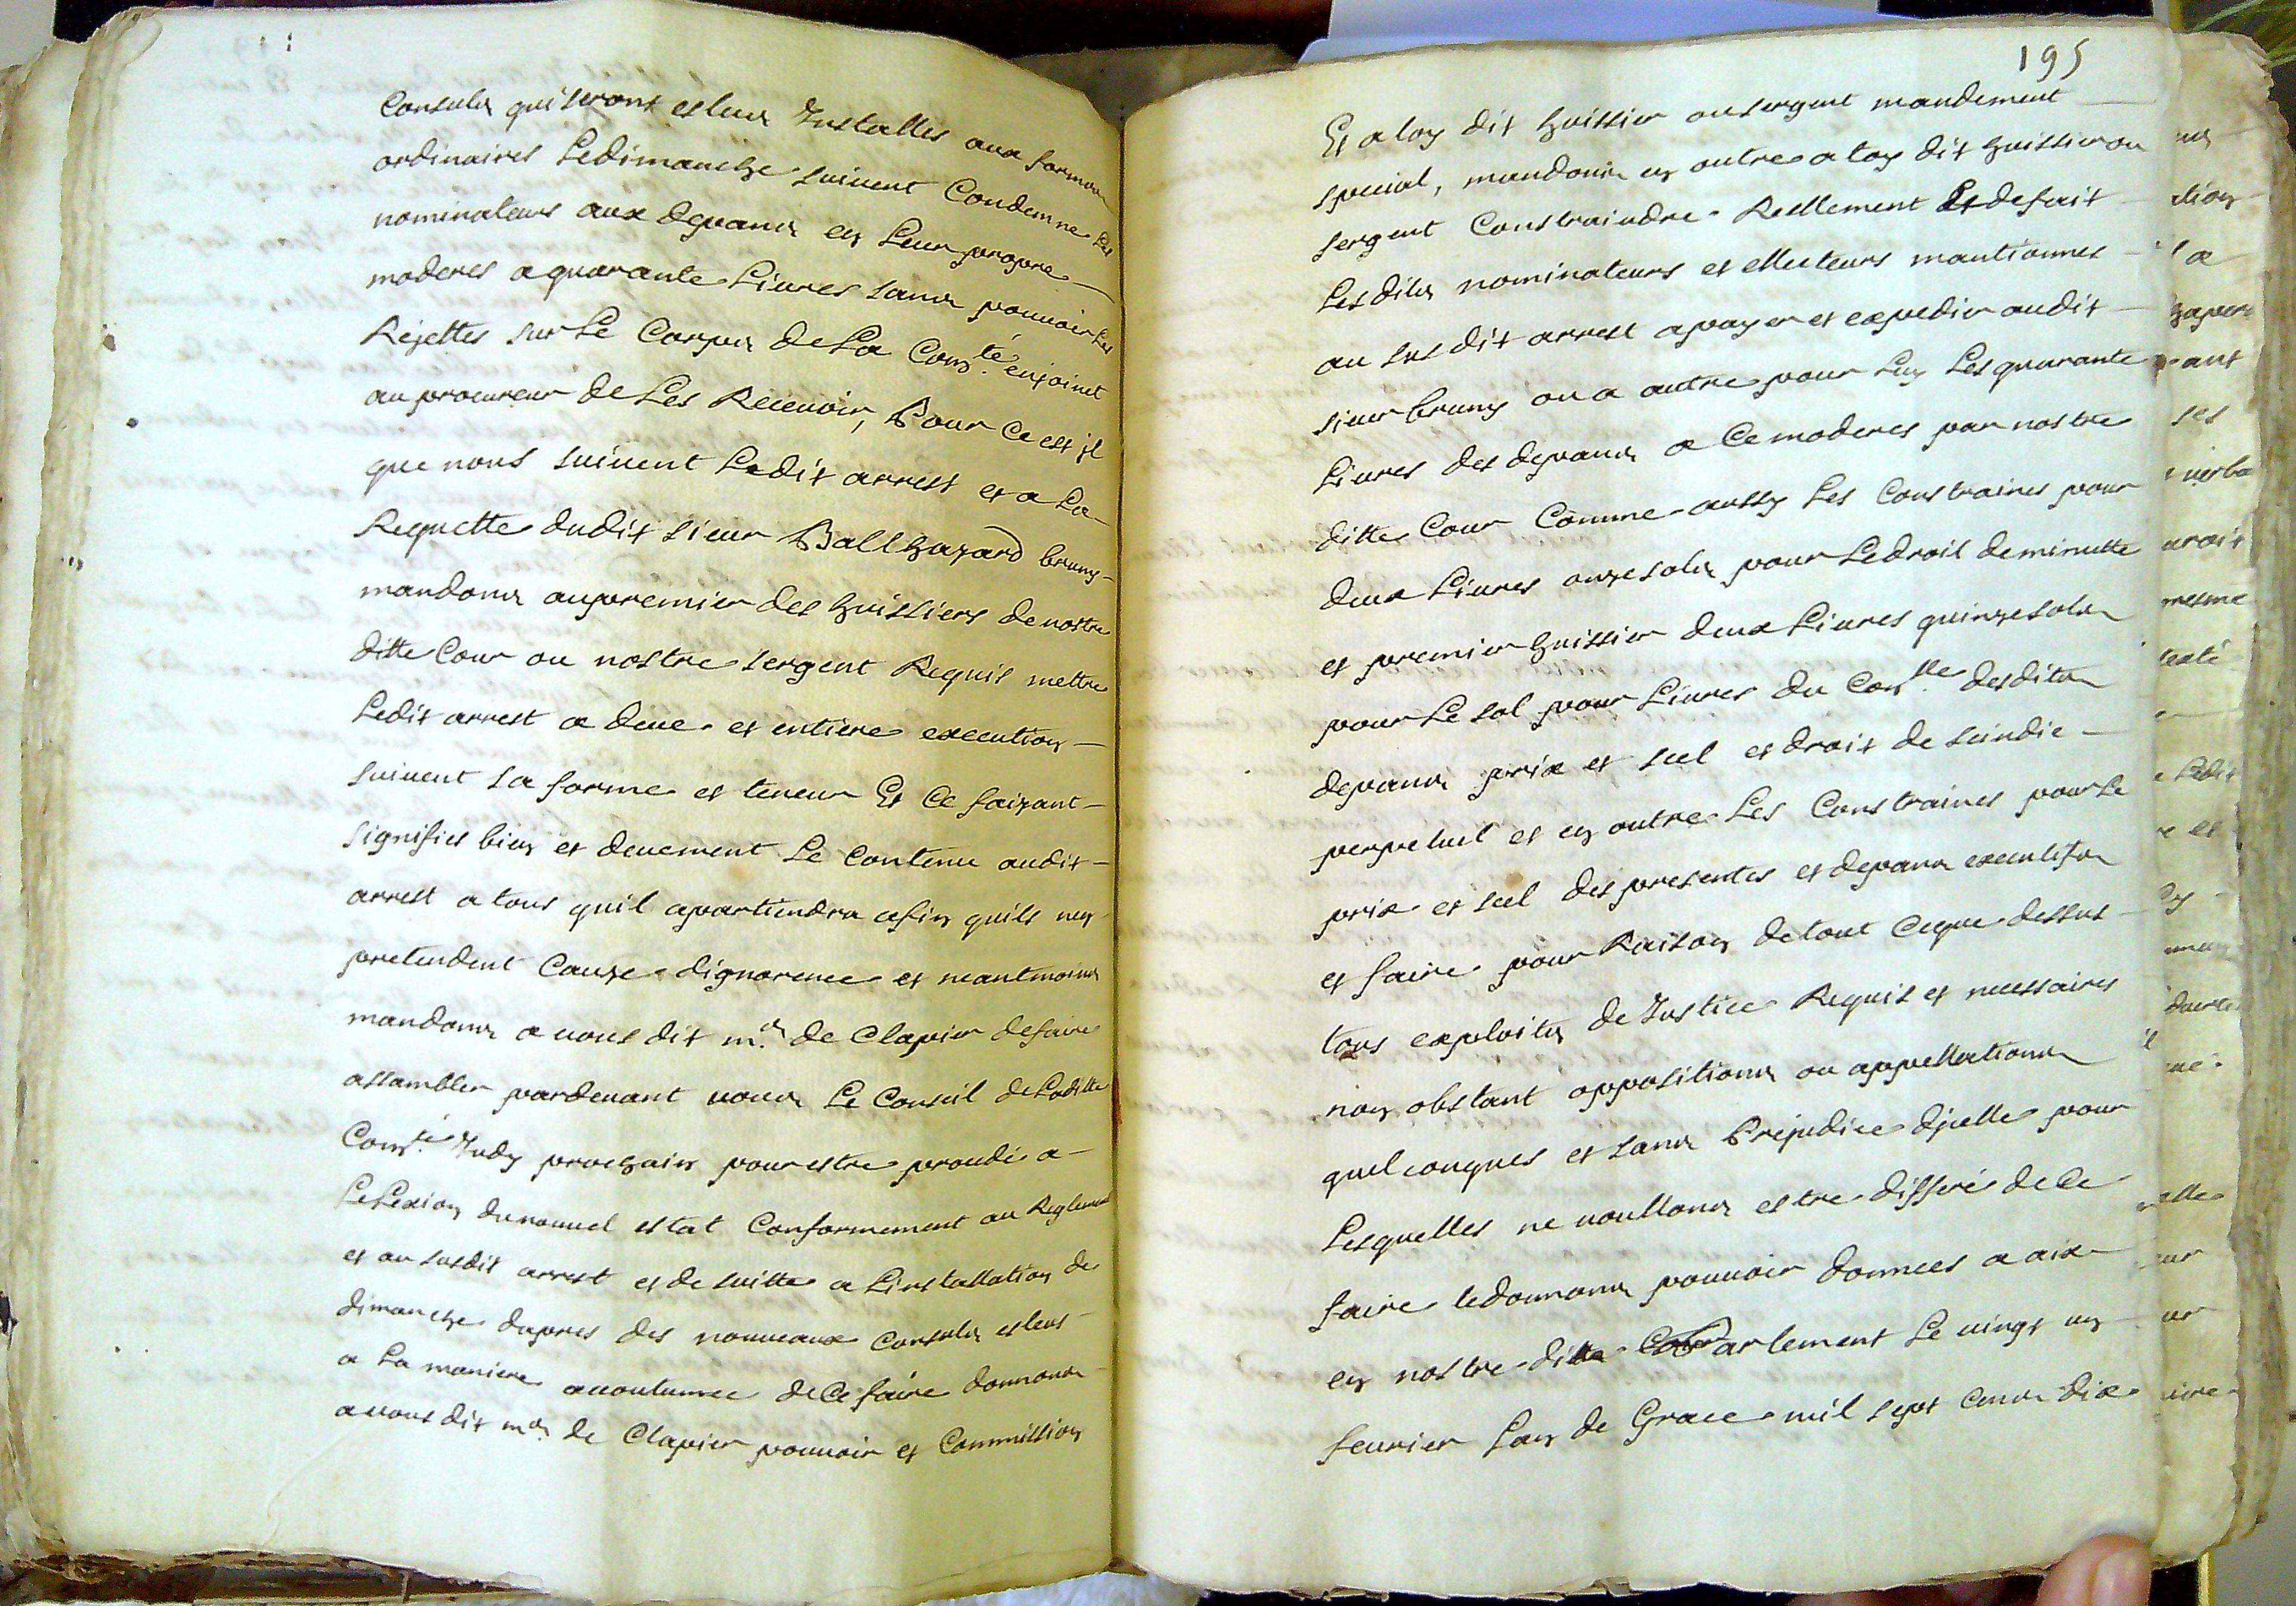 Consuls qui seront esleus Installes aux formes
ordinaires Le dimanche suivent Condemne les
nominateurs aux depans en Leur propre
moderes a quarante Livres sans pouvoir les
Rejettes sur Le Corps de La Com.té enjoinct
au procureur de Les Recevoir, Pour Ce est jl
que nous suivent Ledit arrest et a La
Requette dudit sieur Balthazard bruny
mandons au premier des huissiers de nostre
ditte Cour ou nostre sergent Requis mettre
Ledit arrest a deue et entiere execution
suivent sa forme et teneur Et Ce faizant
signifies bien et deuement Le Contenu audit
arrest a tous quil apartiendra afin quils ney
pretendent Cauze dignorence et neantmoins
mandons a vous dit m.e de Clapier de faire
assambler pardevant vous Le Conseil de Laditte
Com.té Judy prochain pour estre proudé a
LeLexion du nouvel estat Conformement au Reglement
et au susdit arrest et de suitte a Linstallation de
dimanche dapres des nouveaux Consuls esleus
a La maniere acoutumee de Ce faire donnons
a vous dit me de Clapier pouvoir et Commission
195
Et a toy dit huissier ou sergent mandement
special, mandons en outre a toy dit huissier ou
sergent Constraindre Reellement Et de fait
Lesdits nominateurs et ellecteurs mantionnes
au susdit arrest a payer et expedier audit
sieur bruny ou a autre pour Luy Les quarante
Livres des depans a Ce moderes par nostre
ditte Cour Comme aussy Les Constraires pour
deux Livres onze sols pour Le droit de minutte
et premier huissier deux Livres quinze sols
pour Le sol pour Livres du Con.lle desdits
depans prix et scel et droit de scindic
perpetuel et en outre Les Constraires pour Le
prix et scel des presentes et depans executifs
et faire pour Raison de tout Ce que dessus
tous exploits de Justice Requis et necessaires
non obstant oppositions ou appellations
quelconques et sans Prejudice djcelle pour
Lesquelles ne voullons estre differé de Ce
faire te donnons pouvoir donnees a aix
en nostre dit Parlement Le vingt un
fevrier Lan de Grace mil sept cens dix